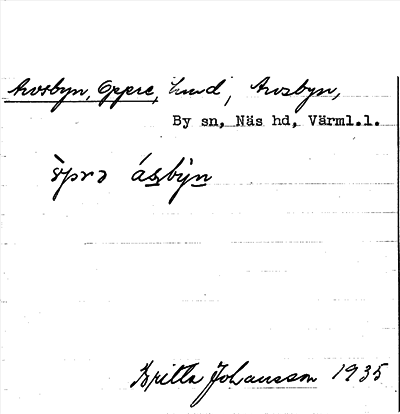 Avosbyn, Oppre, hmd, Avosbyn,
By sn, Näs hd, Värml.l.
òprə ásby̆n
Britta Johansson 1935